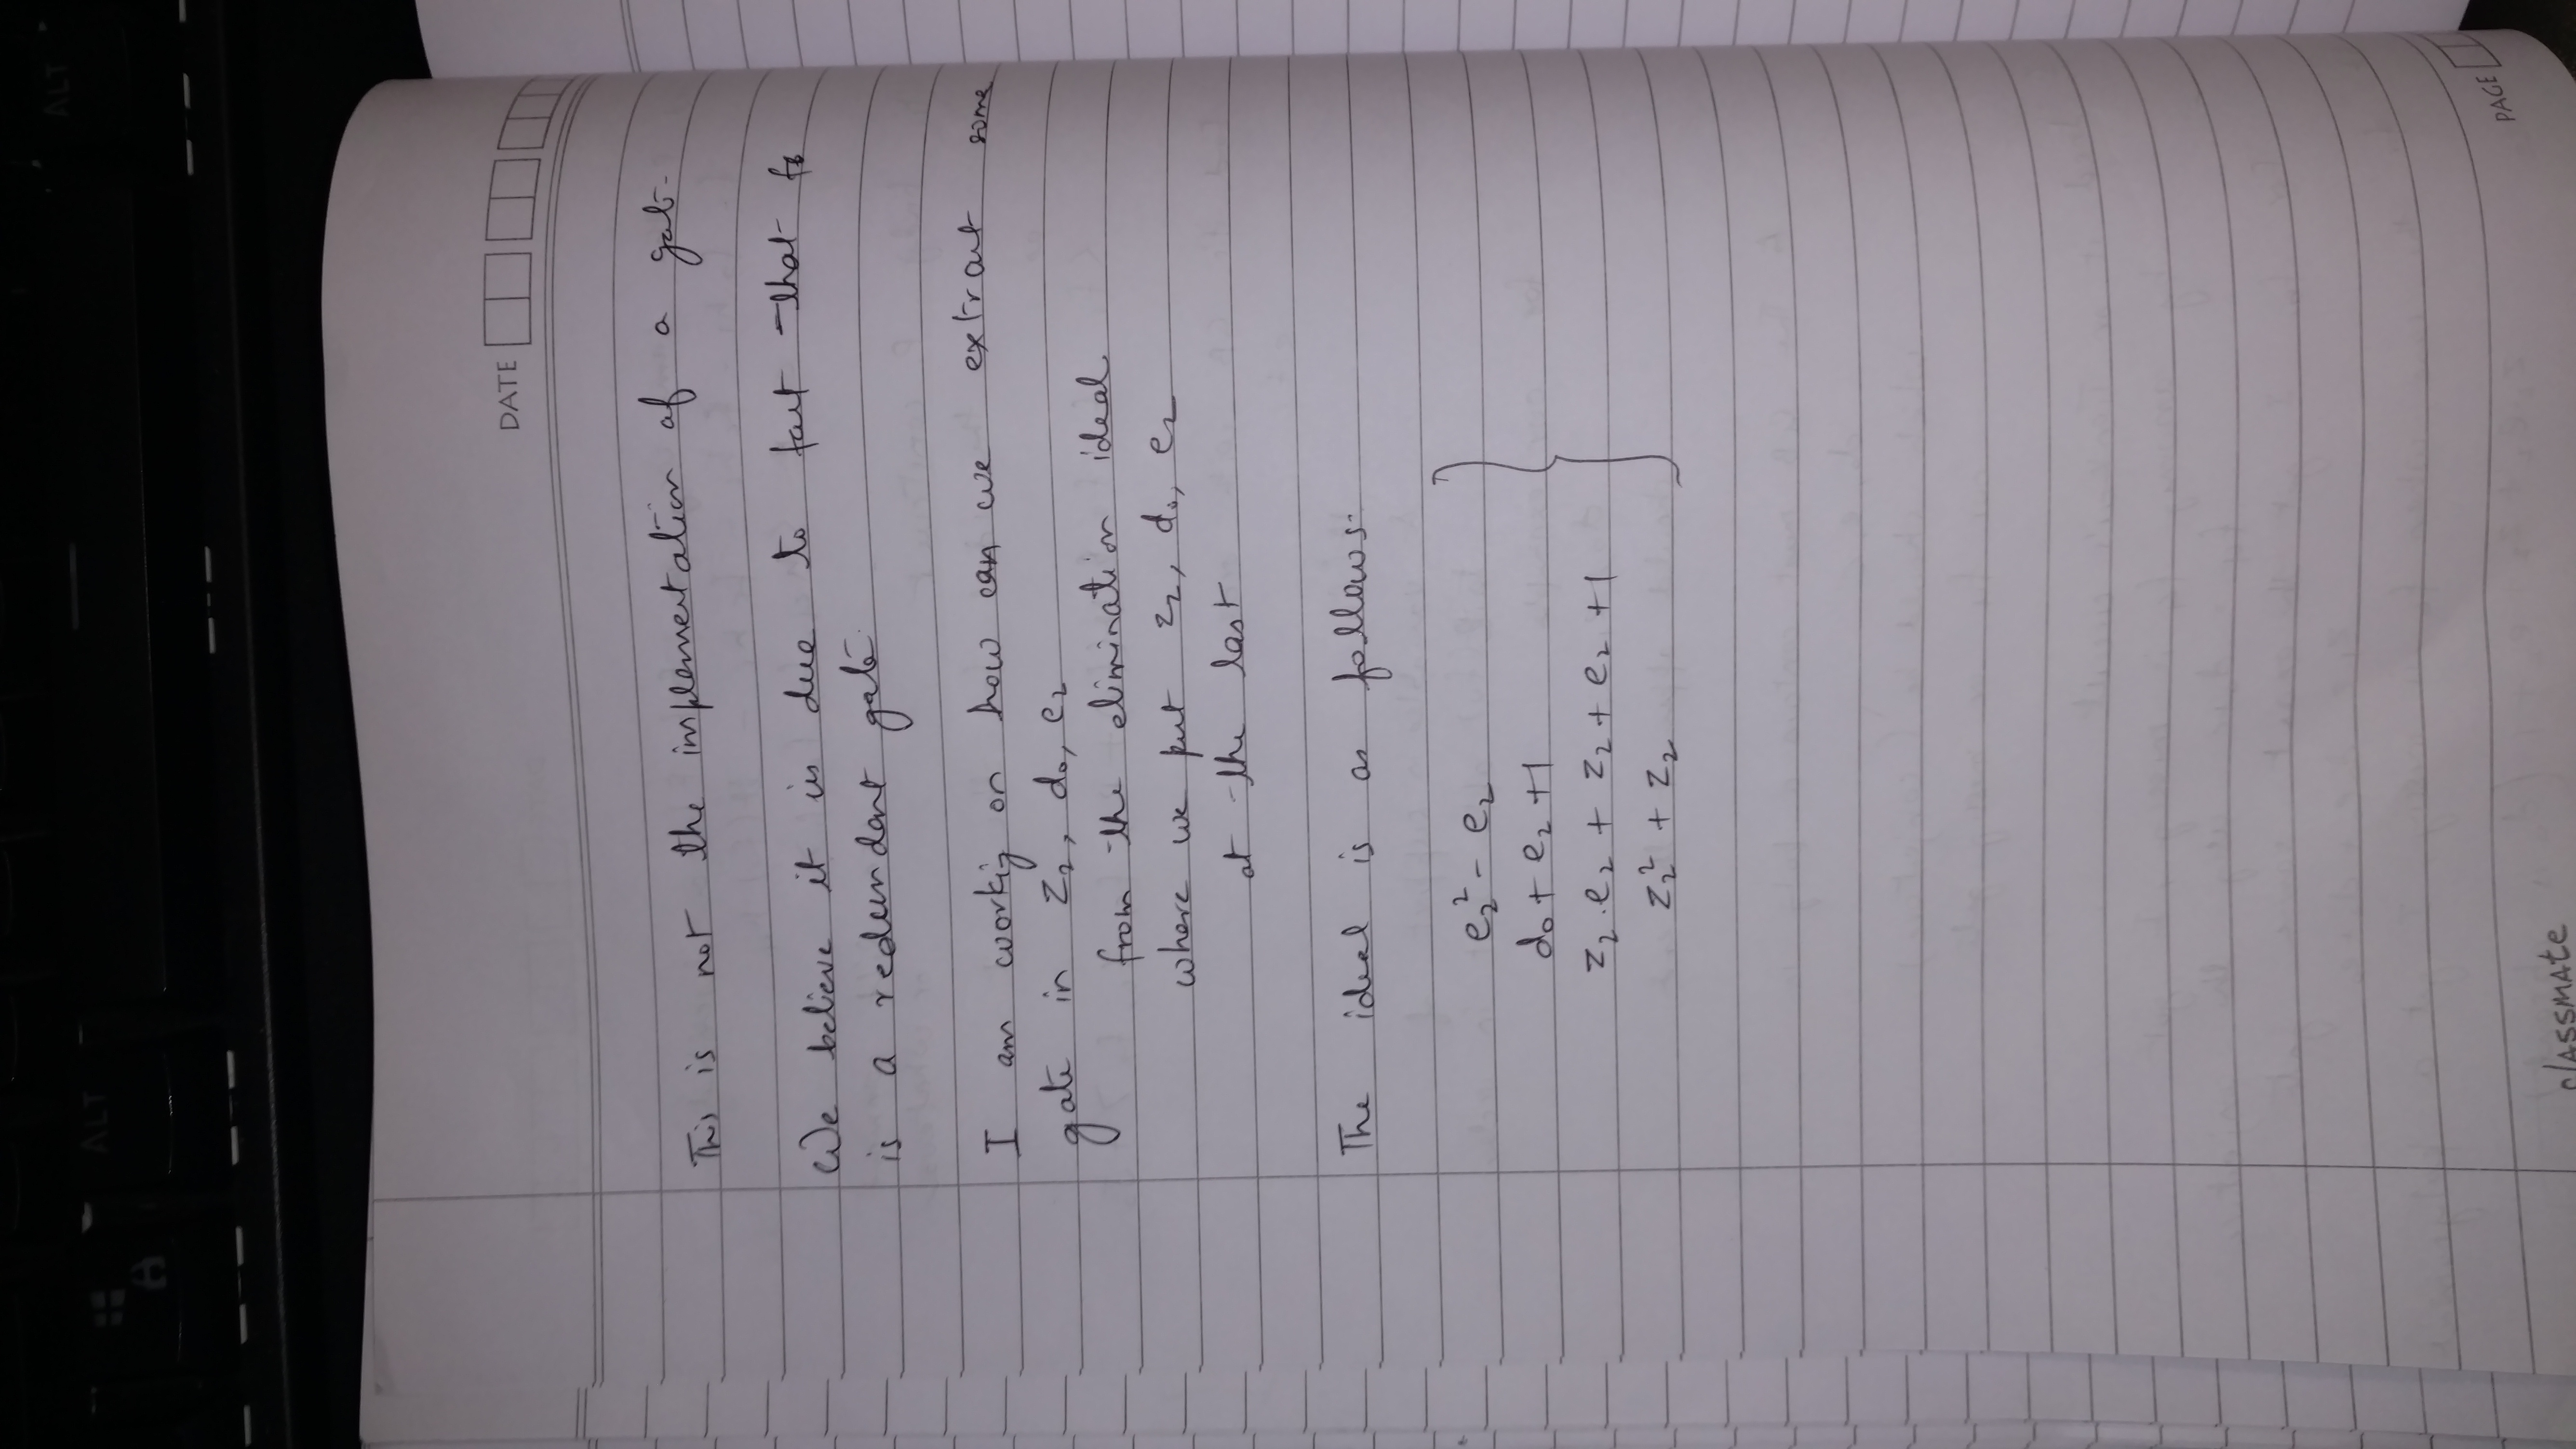 ALT
ALT
DATE
This is not the implementation of a gate
We believe it is due to fact that f6
is a redundant gate
I am workig on how can we extract some
gate in z₂, d₀, e₂
from the elimination ideal
where we put z₂, d₀, e₂
at the last
The ideal is as follows:
e₂² - e₂
d₀ + e₂ + 1
z₂.e₂ + z₂ + e₂ + 1
z₂² + z₂
PAGE
classmate